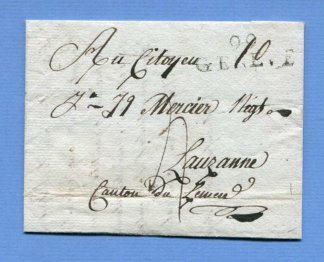 Au Citoyen
99
GENEVE
Mercier Negt
Lauzanne
Canton du Leman